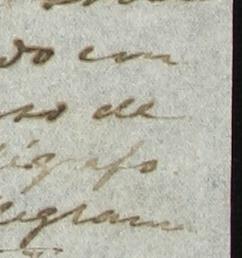 do em
so de
légrafo
legram